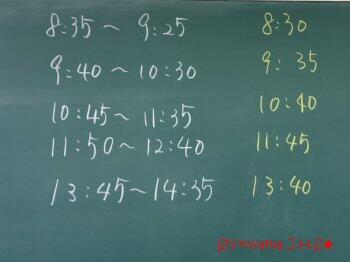 8:35 ~ 9:25 8:30
9:40 ~ 10:30 9:35
10:45 ~ 11:35 10:40
11:50 ~ 12:40 11:45
13:45 ~ 14:35 13:40
Shiroyama J.H.S★